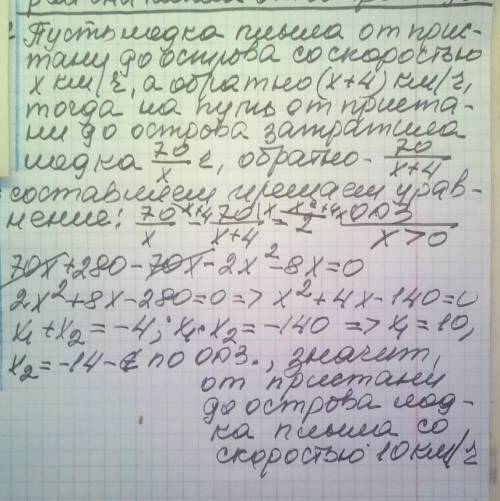 Пусть лодка плыла от прис-
тани до острова со скоростью
x км/г, а обратно (x+4) км/г,
тогда на путь от приста-
ни до острова затратила
лодка 70/x г, обратно - 70/(x+4)
составляем и решаем урав-
нение: 70/x x+4 - 70/(x+4) x = 2 x²+4x ОДЗ x>0
70x+280-70x-2x²-8x=0
2x²+8x-280=0=> x²+4x-140=0
x₁+x₂=-4; x₁·x₂=-140 => x₁=10,
x₂=-14-∉ по ОДЗ., значит,
от пристани
до острова лод-
ка плыла со
скоростью 10 км/г